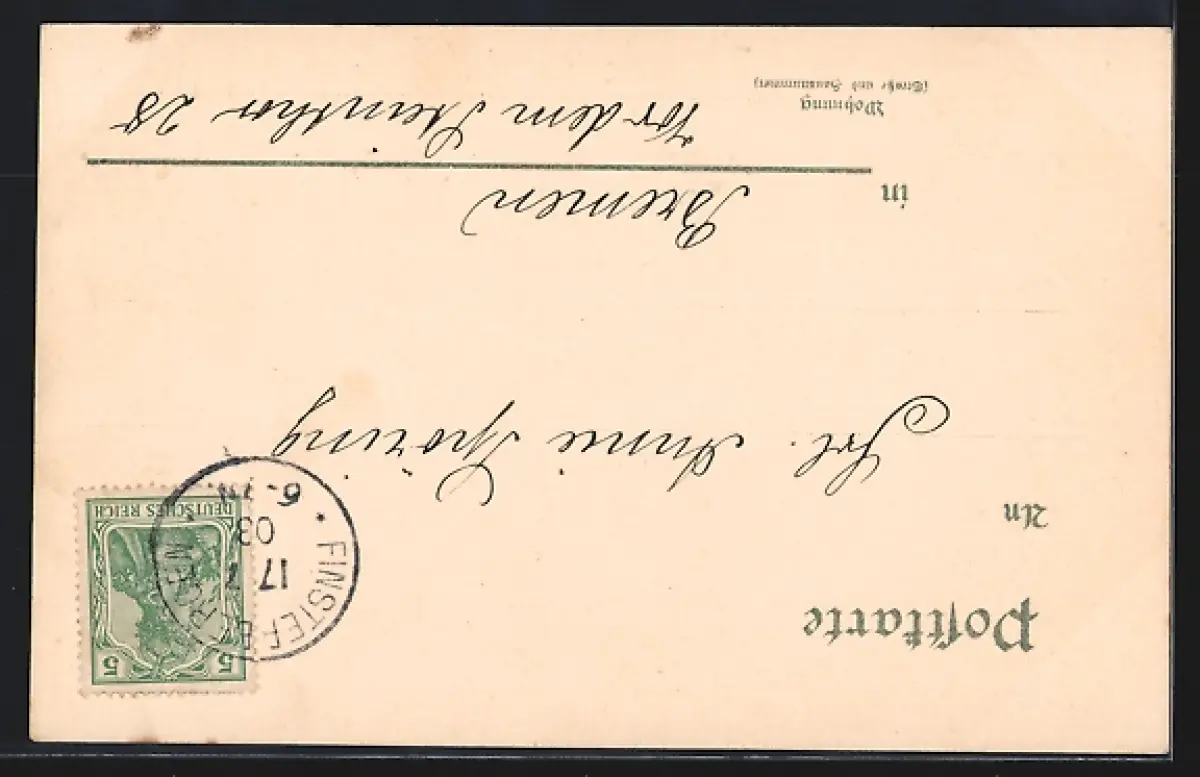 Postkarte
An
Frl. Annie Spöring
in
Bremen
Wohnung
(Straße und Hausnummer)
Vor dem Steinthor 28
DEUTSCHES REICH
5 5
FINSTERBERGEN
17 7
03
6-7N